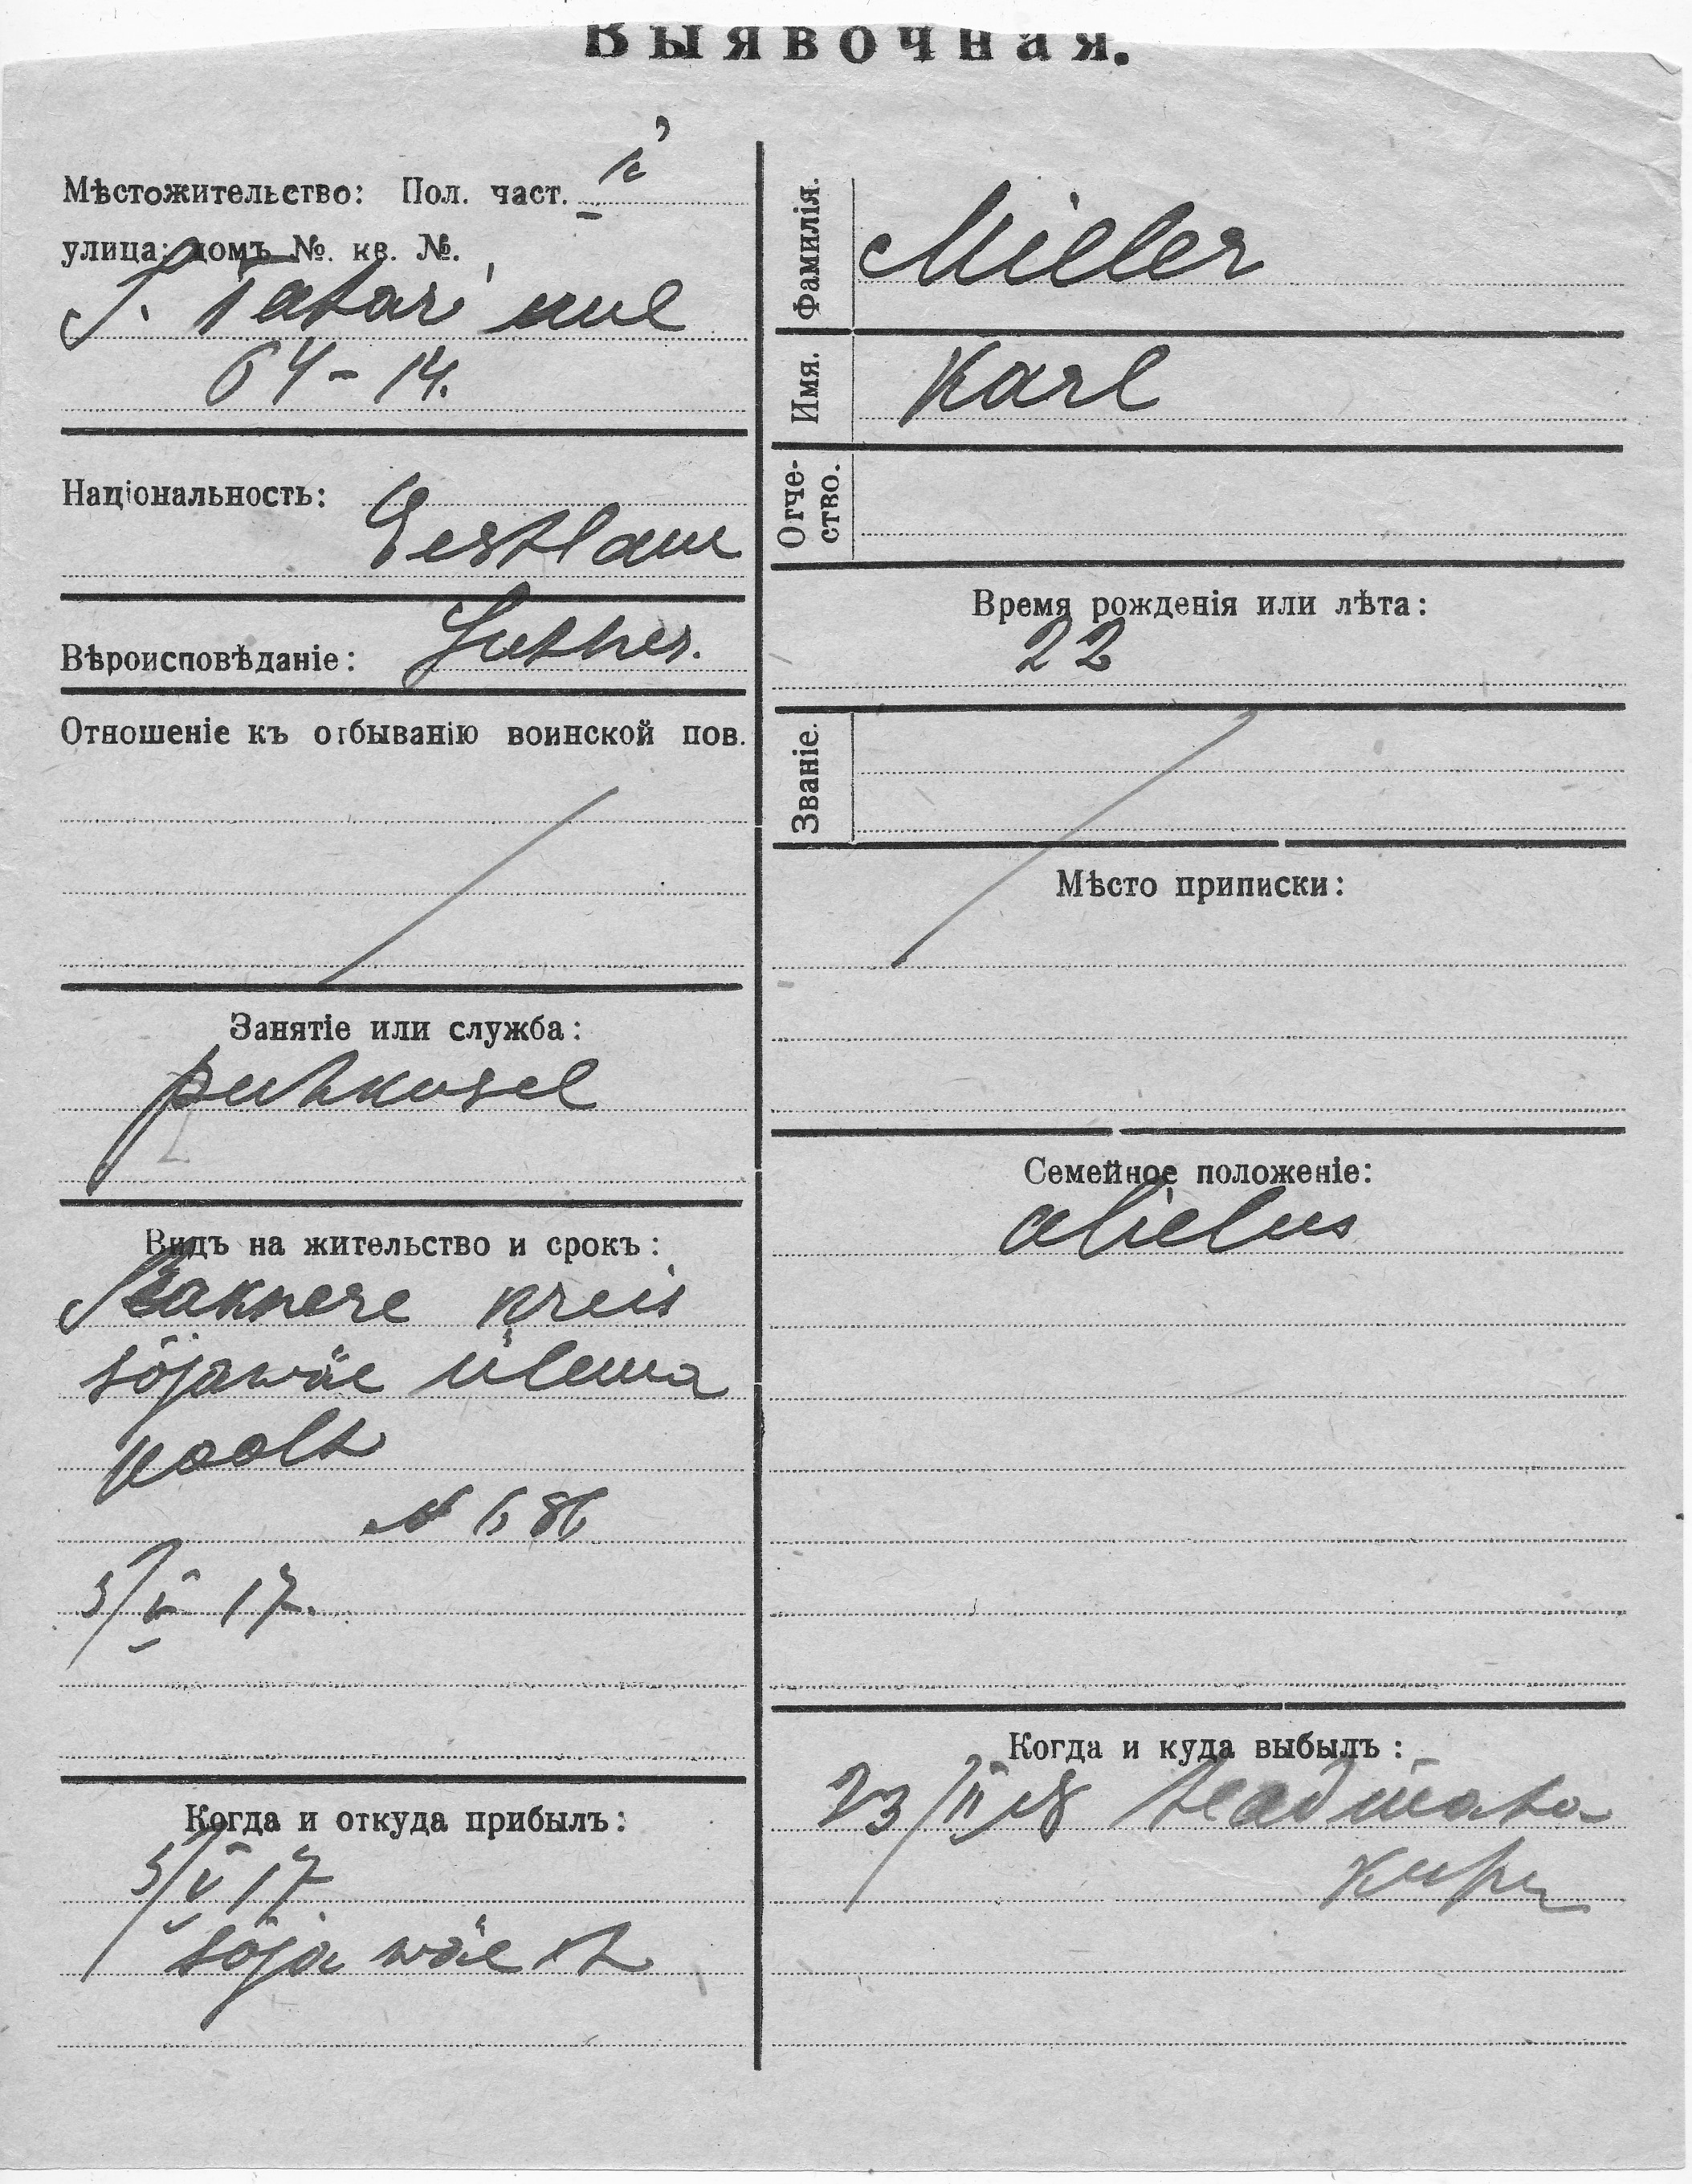 Выявочная.
Мѣстожительство: Пол. част.
улица: домъ №. кв. №.
S. Tatari uul
64 – 14.
Національность:
Eestlane
Вѣроисповѣданіе: Luther.
Отношеніе къ отбыванію воинской пов.
Занятіе или служба:
puhkusel
Видъ на жительство и срокъ:
Rakwere kreis
sõjawäe ülema
poolt
№ 686
5/V 17.
Когда и откуда прибылъ:
5/V 17
sõja wäest
Фамилія. Miller
Имя. Karl
Отче-
ство.
Время рожденія или лѣта:
22
Званіе.
Мѣсто приписки:
Семейное положеніе:
abielus
Когда и куда выбылъ:
23/II 18 teadmata
kuhu